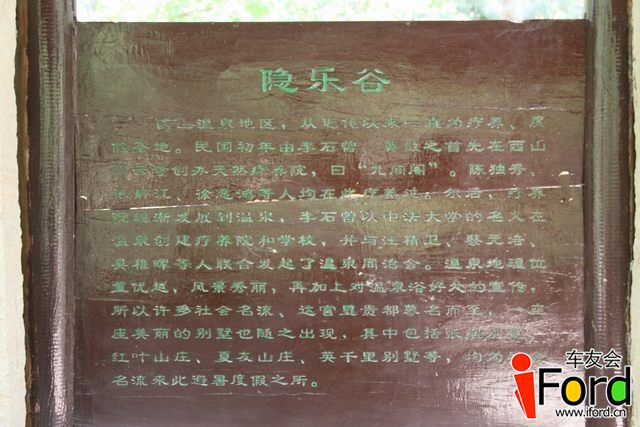 隐乐谷
西山温泉地区，从近代以来一直为疗养、度
假圣地。民国初年由李石曾、英敛之首先在西山
创办天然疗养院，曰“九间阁”。陈独秀、
江、徐悲鸿等人均在此疗养过。尔后，疗养
院逐渐发展到温泉，李石曾以中法大学的名义在
温泉创建疗养院和学校，并与汪精卫、蔡元培、
吴稚晖等人联合发起了温泉同治会。温泉地理位
置优越，风景秀丽，再加上对温泉浴好处的宣传，
所以许多社会名流、达官显贵都慕名而至，一座
座美丽的别墅也随之出现，其中包括
红叶山庄、夏友山庄、英千里别墅等，均为
名流来此避暑度假之所。
车友会
iFord
www.iford.cn